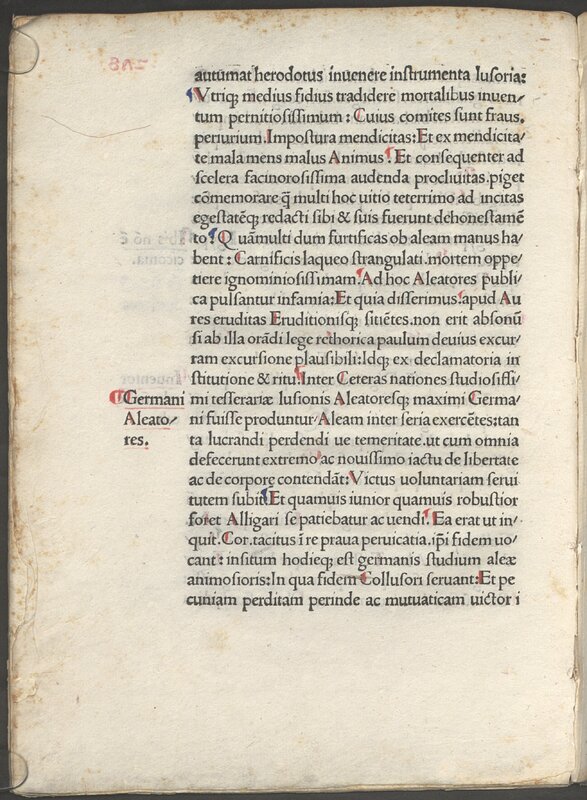 autumat herodotus inuenere instrumenta lusoria:
Vtriqꝫ medius fidius tradidere mortalibus inuen⸗
tum pernitiosissimum : Cuius comites sunt fraus.
periurium. Impostura mendicitas: Et ex mendicita⸗
te mala mens malus Animus. Et consequenter ad
scelera facinorosissima audenda procliuitas. piget
cōmemorare q̄ multi hoc uitio teterrimo ad incitas
egestatēqꝫ redacti sibi & suis fuerunt dehonestamē
to Quāmulti dum furtificas ob aleam manus ha⸗
bent : Carnificis laqueo strangulati. mortem oppe⸗
tiere ignominiosissimam. Ad hoc Aleatores publi⸗
ca pulsantur infamia: Et quia disserimus apud Au
res eruditas Eruditionisqꝫ sitiētes. non erit absonū
si ab illa orādi lege rethorica paulum deuius excur⸗
ram excursione plausibili: Idqꝫ ex declamatoria in
stitutione & ritu. Inter Ceteras nationes studiosissi⸗
mi tesserariæ lusionis Aleatoresqꝫ maximi Germa⸗
ni fuisse produntur. Aleam inter seria exercētes: tan
ta lucrandi perdendi ue temeritate. ut cum omnia
defecerunt extremo ac nouissimo iactu de libertate
ac de corpore contendāt: Victus uoluntariam serui
tutem subit. Et quamuis iunior quamuis robustior
foret Alligari se patiebatur ac uendi. Ea erat ut in⸗
quit. Cor. tacitus ī re praua peruicatia. ip̄i fidem uo⸗
cant : insitum hodieqꝫ est germanis studium aleæ
animosioris: In qua fidem Collusori seruant: Et pe
cuniam perditam perinde ac mutuaticam uictor i
Germani
Aleato⸗
res.